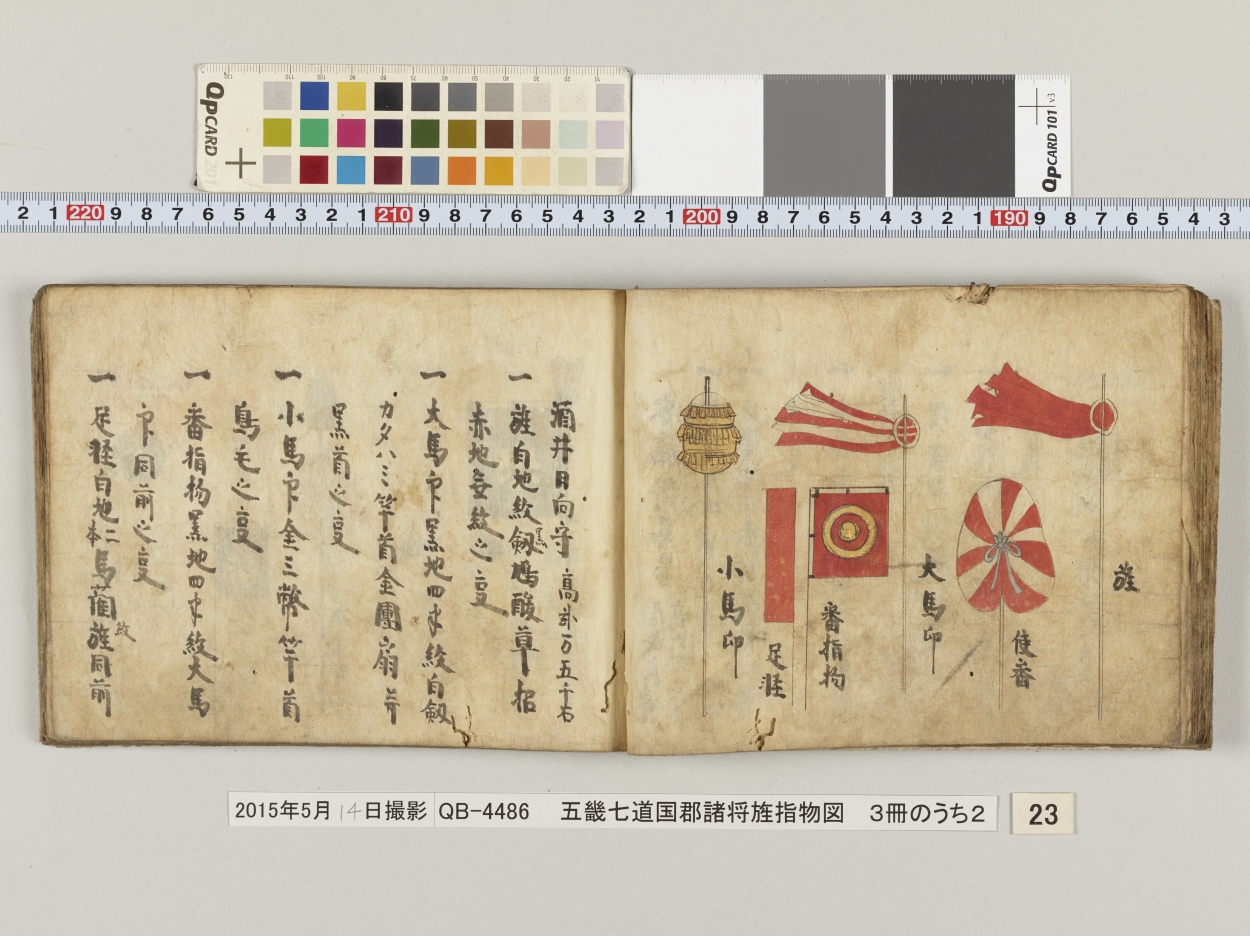 QPCARD 201
QPCARD 101 v3
2 1 220 9 8 7 6 5 4 3 2 1 210 9 8 7 6 5 4 3 2 1 200 9 8 7 6 5 4 3 2 1 190 9 8 7 6 5 4 3
旌
使番
大馬印
番指物
足軽
小馬印
酒井日向守 高弐万五千石
一 旌白地紋黒釼鳩酸草招
赤地無紋之㕝
一 大馬印黒地四半紋白釼
カタハミ竿首金團扇并
黒首之㕝
一 小馬印金三幣竿首
鳥毛之㕝
一 番指物黒地四半紋大馬
印同前之㕝
一 足軽白地二本馬藺紋旌同前
2015年5月14日撮影 QB-4486 五畿七道国郡諸将旌指物図 3冊のうち2
23